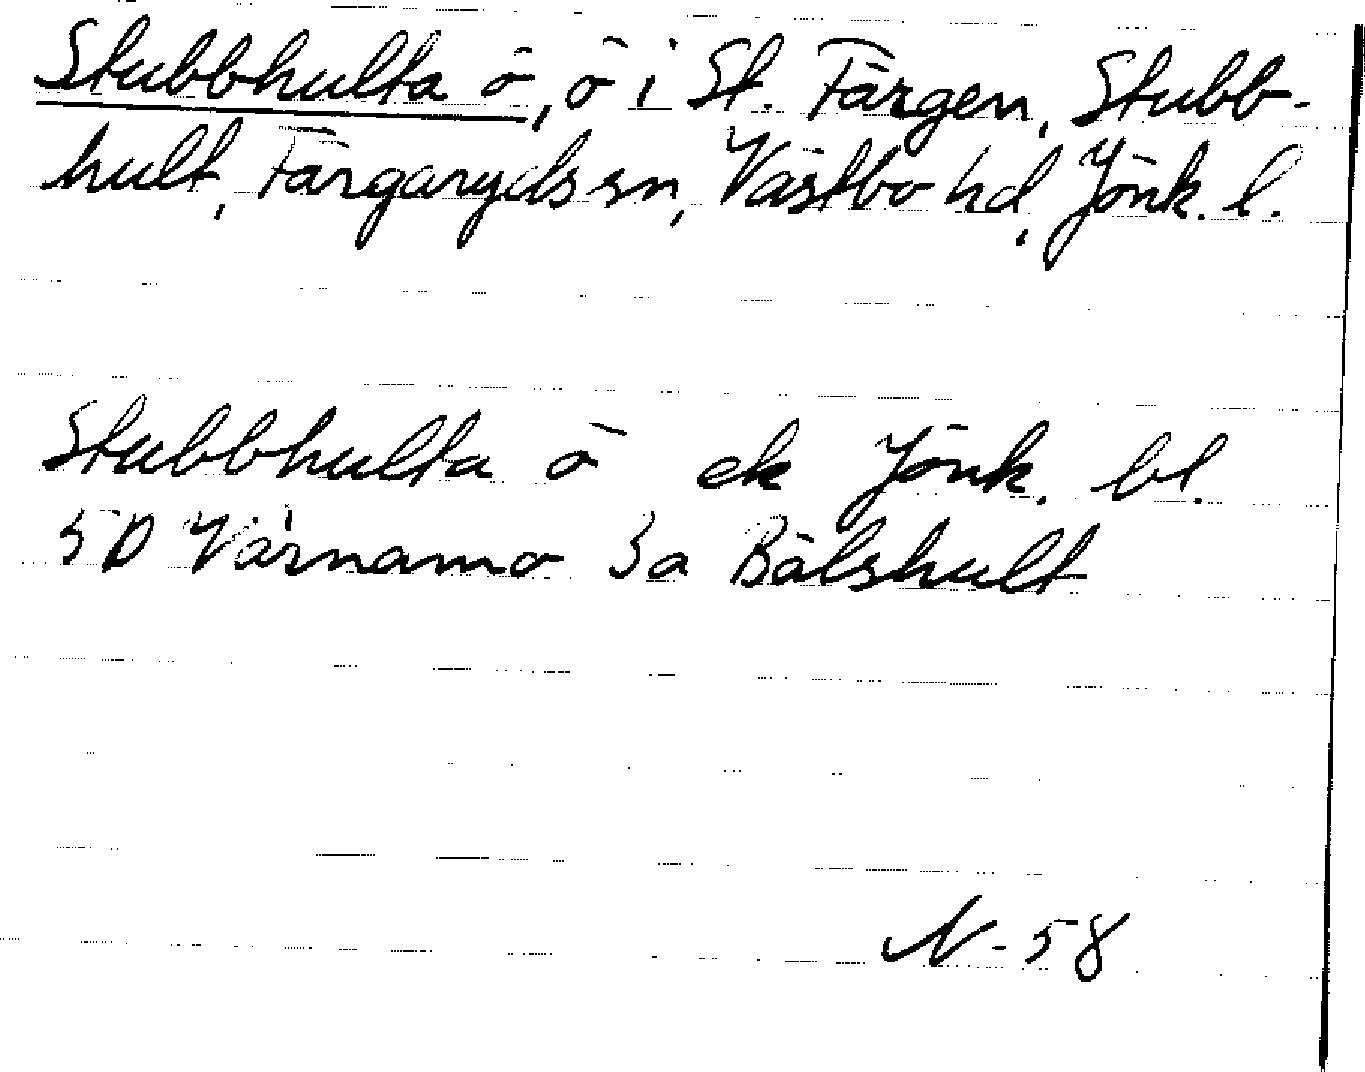 Stubbhulta ö, ö i St. Färgen, Stubb-
hult, Färgaryds sn, Västbo hd, Jönk. l.
Stubbhulta ö ek Jönk. bl.
5D Värnamo 3a Bålshult
N-58